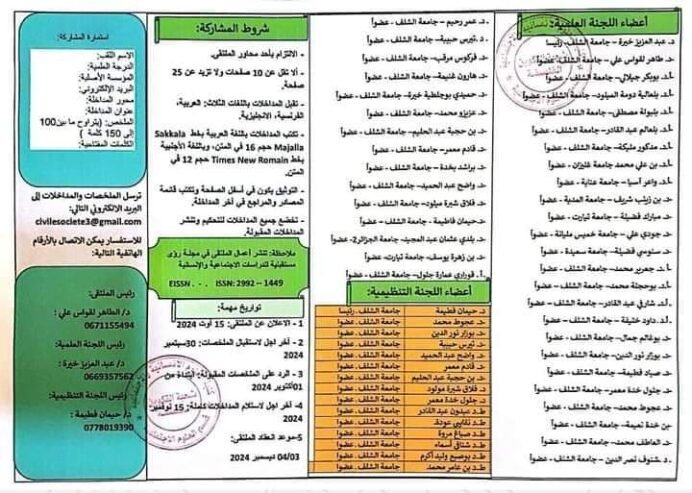 أعضاء اللجنة العلمية:
د. عبد العزيز خيرة – جامعة الشلف - رئيسا
د. طاهر لقواس علي – جامعة الشلف - عضواً
أ.د. بوبكر جيلالي – جامعة الشلف - عضواً
د. بلعالية دومة الميلود – جامعة الشلف - عضواً
د. بلبولة مصطفى – جامعة الشلف - عضواً
د. بلعالم عبد القادر – جامعة الشلف - عضواً
د. مدكور مليكة – جامعة الشلف - عضواً
د. بن علي محمد جامعة غليزان - عضواً
د. واعر أسيا – جامعة عنابة - عضواً
د. بن زينب شريف – جامعة المدية - عضواً
د. مبارك فضيلة – جامعة تيارت - عضواً
د. جودي علي – جامعة خميس مليانة - عضواً
د. سنوسي فضيلة – جامعة سعيدة - عضواً
أ.د. جعرير محمد – جامعة الشلف - عضواً
أ.د. بوحجلة محمد – جامعة الشلف - عضواً
أ.د. شارفي عبد القادر – جامعة الشلف - عضواً
د. داود خليفة – جامعة الشلف - عضواً
د. بوغالم جمال – جامعة الشلف - عضواً
د. بوزار نور الدين – جامعة الشلف - عضواً
د. صياد فطيمة – جامعة الشلف - عضواً
د. جلول خدة معمر – جامعة الشلف - عضواً
د. عجوط محمد – جامعة الشلف - عضواً
د. بن خدة نعيمة – جامعة الشلف - عضواً
د. العاطف محمد – جامعة الشلف - عضواً
د. شنوف نصر الدين – جامعة الشلف - عضواً
د. عمر رحيم – جامعة الشلف - عضواً
د. تيرس حبيبة – جامعة الشلف - عضواً
د. فركوس مرقب – جامعة الشلف - عضواً
د. هارون غنيمة – جامعة الشلف - عضواً
د. حميدي بوجلطية خيرة – جامعة الشلف - عضواً
د. عزيزو محمد – جامعة الشلف - عضواً
د. بن حجبة عبد الحليم – جامعة الشلف - عضواً
د. قادم معمر – جامعة الشلف - عضواً
د. براشد بخدة – جامعة الشلف - عضواً
د. واضح عبد الحميد – جامعة الشلف - عضواً
د. فلاق شبرة ميلود – جامعة الشلف - عضواً
د. حيمان فاطيمة – جامعة الشلف - عضواً
د. بلدي عثمان عبد المجيد – جامعة الجزائر2 - عضواً
د. بن زهرة يوسف – جامعة تيارت - عضواً
أ. قوراري عمارة جلول – جامعة الشلف - عضواً
أعضاء اللجنة التنظيمية:
د. حيمان فطيمة جامعة الشلف - رئيسا
د. عجوط محمد جامعة الشلف - عضوا
د. بوزار نور الدين جامعة الشلف - عضوا
د. تيرس حبيبة جامعة الشلف - عضوا
د. واضح عبد الحميد جامعة الشلف - عضوا
د. قادم معمر جامعة الشلف - عضوا
د. بن حجبة عبد الحليم جامعة الشلف - عضوا
د. فلاق شبرة مولود جامعة الشلف - عضوا
د. جلول خدة معمر جامعة الشلف - عضوا
ط.د عبدون عبد القادر جامعة الشلف - عضوا
ط.د نقايبي عودة جامعة الشلف - عضوا
ط.د صياغ مروة جامعة الشلف - عضوا
ط.د شتاقي أسماء جامعة الشلف - عضوا
ط.د بوصبيع وليد أكرم جامعة الشلف - عضوا
ط.د بن عامر محمد جامعة الشلف - عضوا
شروط المشاركة:
- الالتزام بأحد محاور الملتقى.
- ألا تقل عن 10 صفحات ولا تزيد عن 25
صفحة.
- تقبل المداخلات باللغات الثلاث: العربية،
الفرنسية، الانجليزية.
- تكتب المداخلات باللغة العربية بخط Sakkala
Majalla حجم 16 في المتن، وباللغة الأجنبية
بخط Times New Romain حجم 12 في
المتن.
- التوثيق يكون في أسفل الصفحة وتكتب قائمة
المصادر والمراجع في آخر المداخلة.
- تخضع جميع المداخلات للتحكيم وتنشر
المداخلات المقبولة.
ملاحظة: تنشر أعمال الملتقى في مجلة رؤى
مستقبلية للدراسات الاجتماعية والإنسانية
EISSN . - . ISSN: 2992 – 1449
تواريخ مهمة:
1 - الاعلان عن الملتقى: 15 أوت 2024
2 - آخر اجل لاستقبال الملخصات: 30سبتمبر
2024
3 - الرد على الملخصات المقبولة: ابتداء من
01أكتوبر 2024
4 - آخر اجل لاستلام المداخلات كاملة: 15 نوفمبر
2024
5-موعد انعقاد الملتقى:
04/03 ديسمبر 2024
استمارة المشاركة:
الاسم اللقب:
الدرجة العلمية:
المؤسسة الأصلية:
البريد الإلكتروني:
محور المداخلة:
عنوان المداخلة:
الملخص: (يتراوح ما بين100
إلى 150 كلمة )
الكلمات المفتاحية:
ترسل الملخصات والمداخلات إلى
البريد الالكتروني التالي:
civilesociete3@gmail.com
للاستفسار يمكن الاتصال بالأرقام
الهاتفية التالية:
رئيس الملتقى:
د/ الطاهر لقواس علي :
0671155494
رئيس اللجنة العلمية:
د/ عبد العزيز خيرة :
0669357562
رئيس اللجنة التنظيمية:
د/ حيمان فطيمة :
0778019390